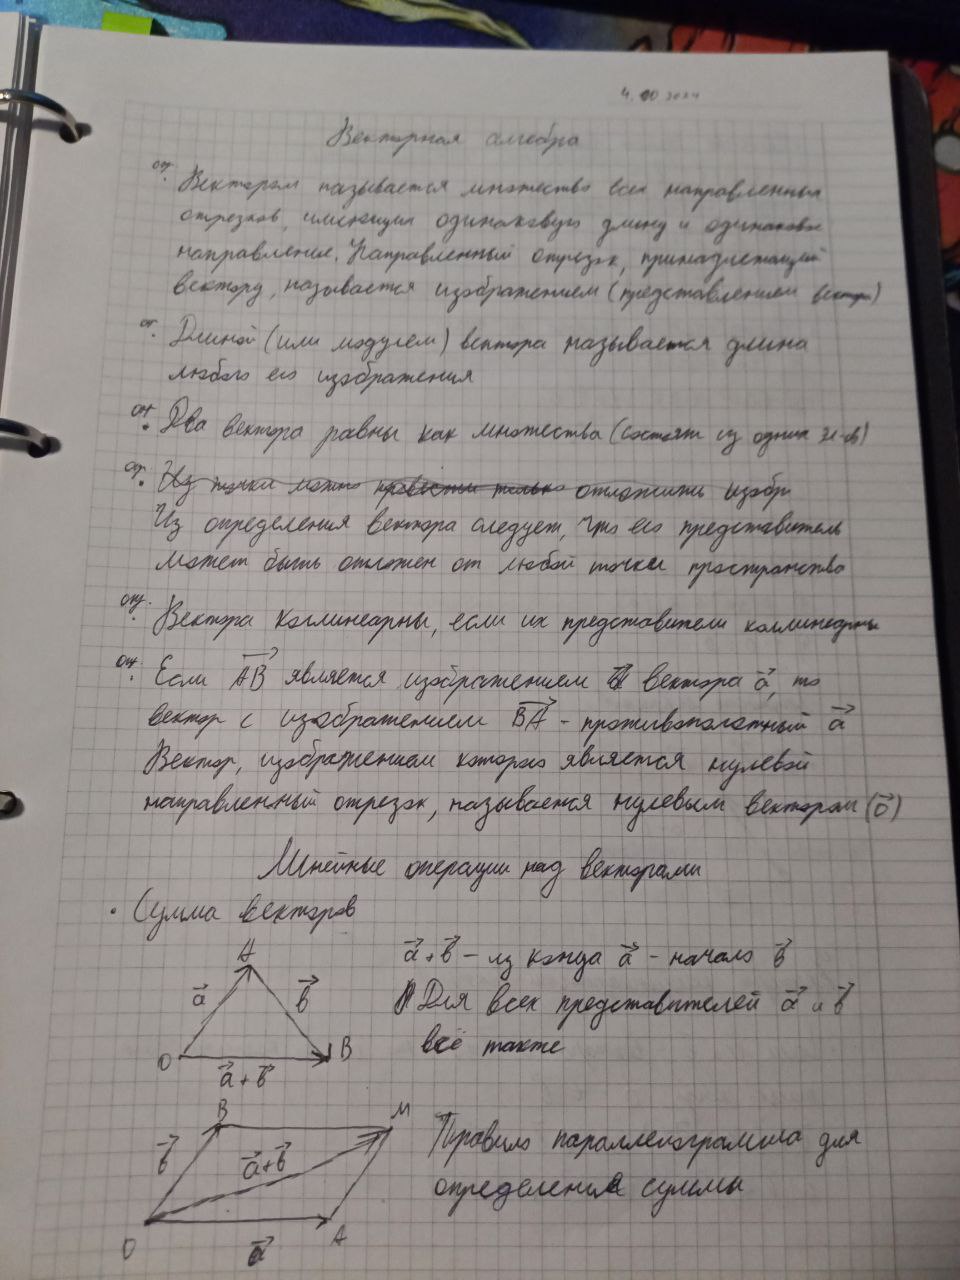 4.10 2024
Векторная алгебра
оп. Вектором называется множество всех направленных
отрезков, имеющих одинаковую длину и одинаковое
направление. Направленный отрезок, принадлежащий
вектору, называется изображением (представлением вектора)
оп. Длиной (или модулем) вектора называется длина
любого его изображения
оп. Два вектора равны как множества (состоят из одних эл-ов)
оп. Из точки можно провести только отложить изобр
Из определения вектора следует, что его представитель
может быть отложен от любой точки пространства
оп. Вектора коллинеарны, если их представители коллинеарны
оп. Если AB является изображением вектора a, то
вектор с изображением BA - противоположный a
Вектор, изображением которого является нулевой
направленный отрезок, называется нулевым вектором (0)
Линейные операции над векторами
• Сумма векторов
A
a b
O B
a + b
a + b – из конца a - начало b
Для всех представителей a и b
всё также
B M
b a+b
O a A
Правило параллелограмма для
определения суммы